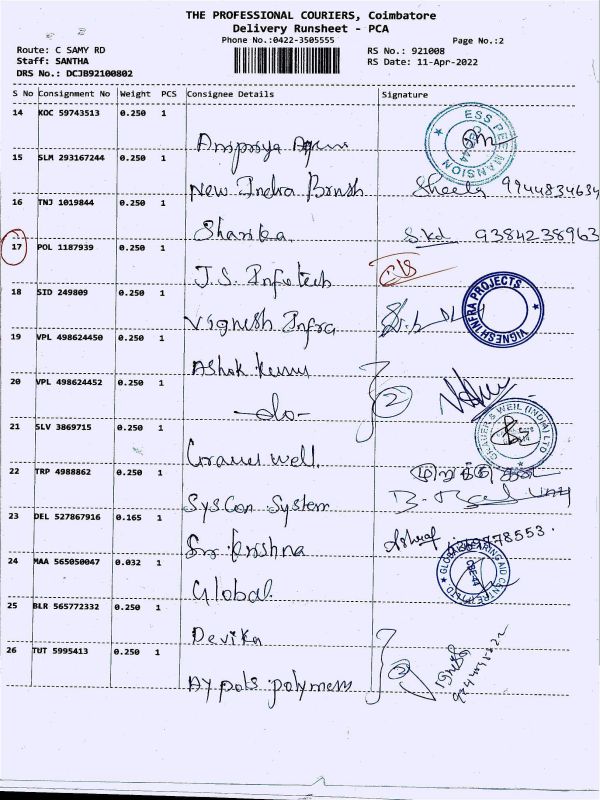 THE PROFESSIONAL COURIERS, Coimbatore
Delivery Runsheet - PCA
Phone No.:0422-3505555
Page No.:2
Route: C SAMY RD
RS No.: 921008
Staff: SANTHA
RS Date: 11-Apr-2022
DRS No.: DCJB92100802
S No Consignment No Weight PCS Consignee Details Signature
14 KOC 59743513 0.250 1
ESS PEE MANSION
15 SLM 293167244 0.250 1
New Indra Brush Sheela 9944834634
16 TNJ 1019844 0.250 1
Sharika S.kd 9384238963
17 POL 1187939 0.250 1
J.S. Infotech
18 SID 249809 0.250 1
Vignesh Infra VIGNESH INFRA PROJECTS
19 VPL 498624450 0.250 1
Ashok kumar
20 VPL 498624452 0.250 1
-do- 2
21 SLV 3869715 0.250 1
Grauer well. GRAUER & WEIL (INDIA) LTD
22 TRP 4988862 0.250 1
SysCon System
23 DEL 527867916 0.165 1
Sri Krishna Ashraf
24 MAA 565050047 0.032 1
Global GLOBAL HEARING AID CENTRE PVT LTD
25 BLR 565772332 0.250 1
Devika
26 TUT 5995413 0.250 1
Aypols polymers 2